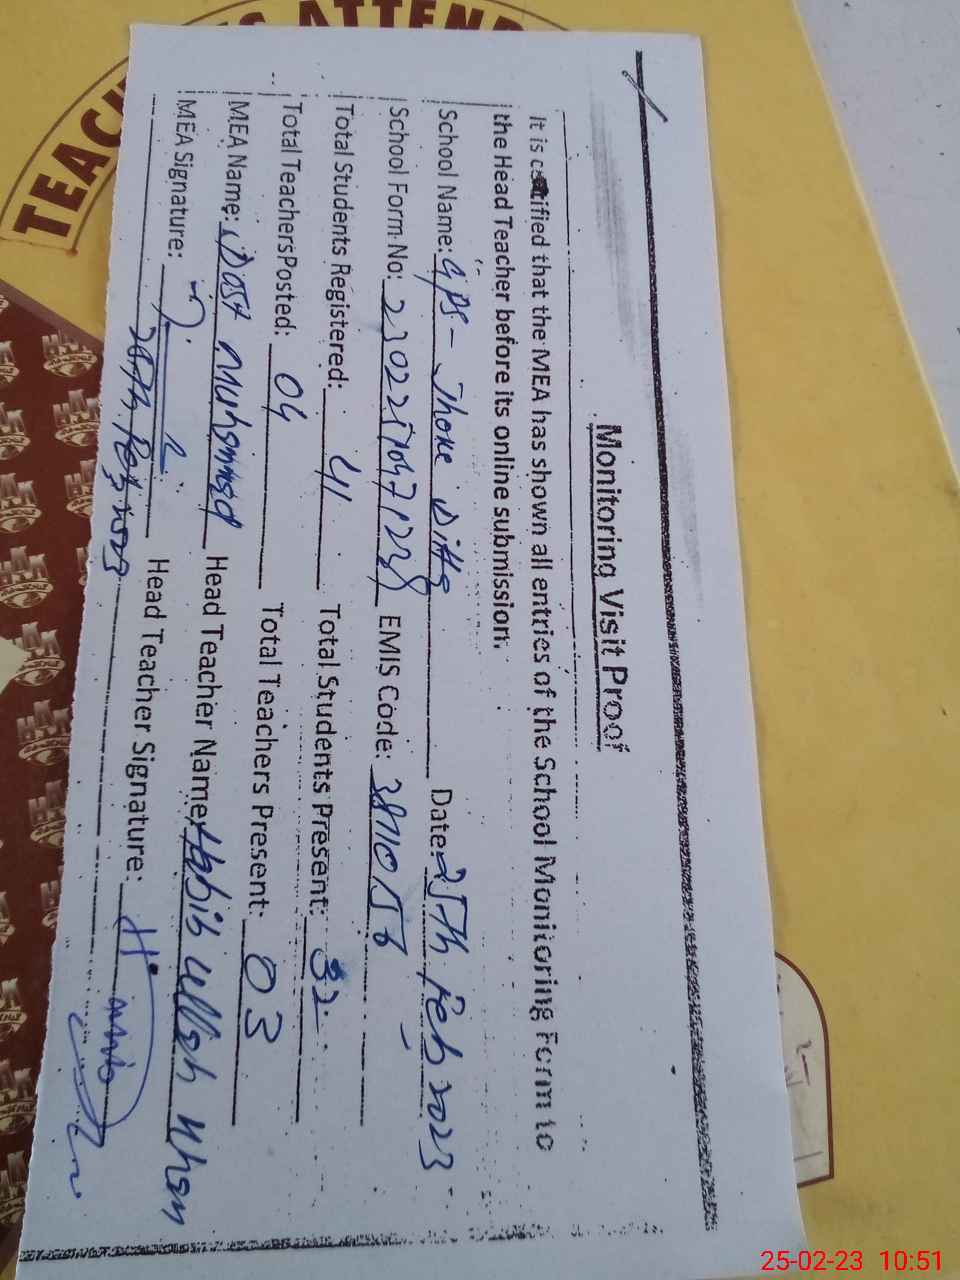 TEAC
S ATTEND
Monitoring Visit Proof
It is certified that the MEA has shown all entries of the School Monitoring Form to
the Head Teacher before its online submission.
School Name: GPS - Jhoke Ditta Date: 25Th Feb 2023
School Form No: EMIS Code:
Total Students Registered: 41 Total Students Present: 32
Total Teachers Posted: 04 Total Teachers Present: 03
MEA Name: Dost Muhammad Head Teacher Name: Habib ullah Khan
MEA Signature: Head Teacher Signature:
Feb 2023
25-02-23 10:51